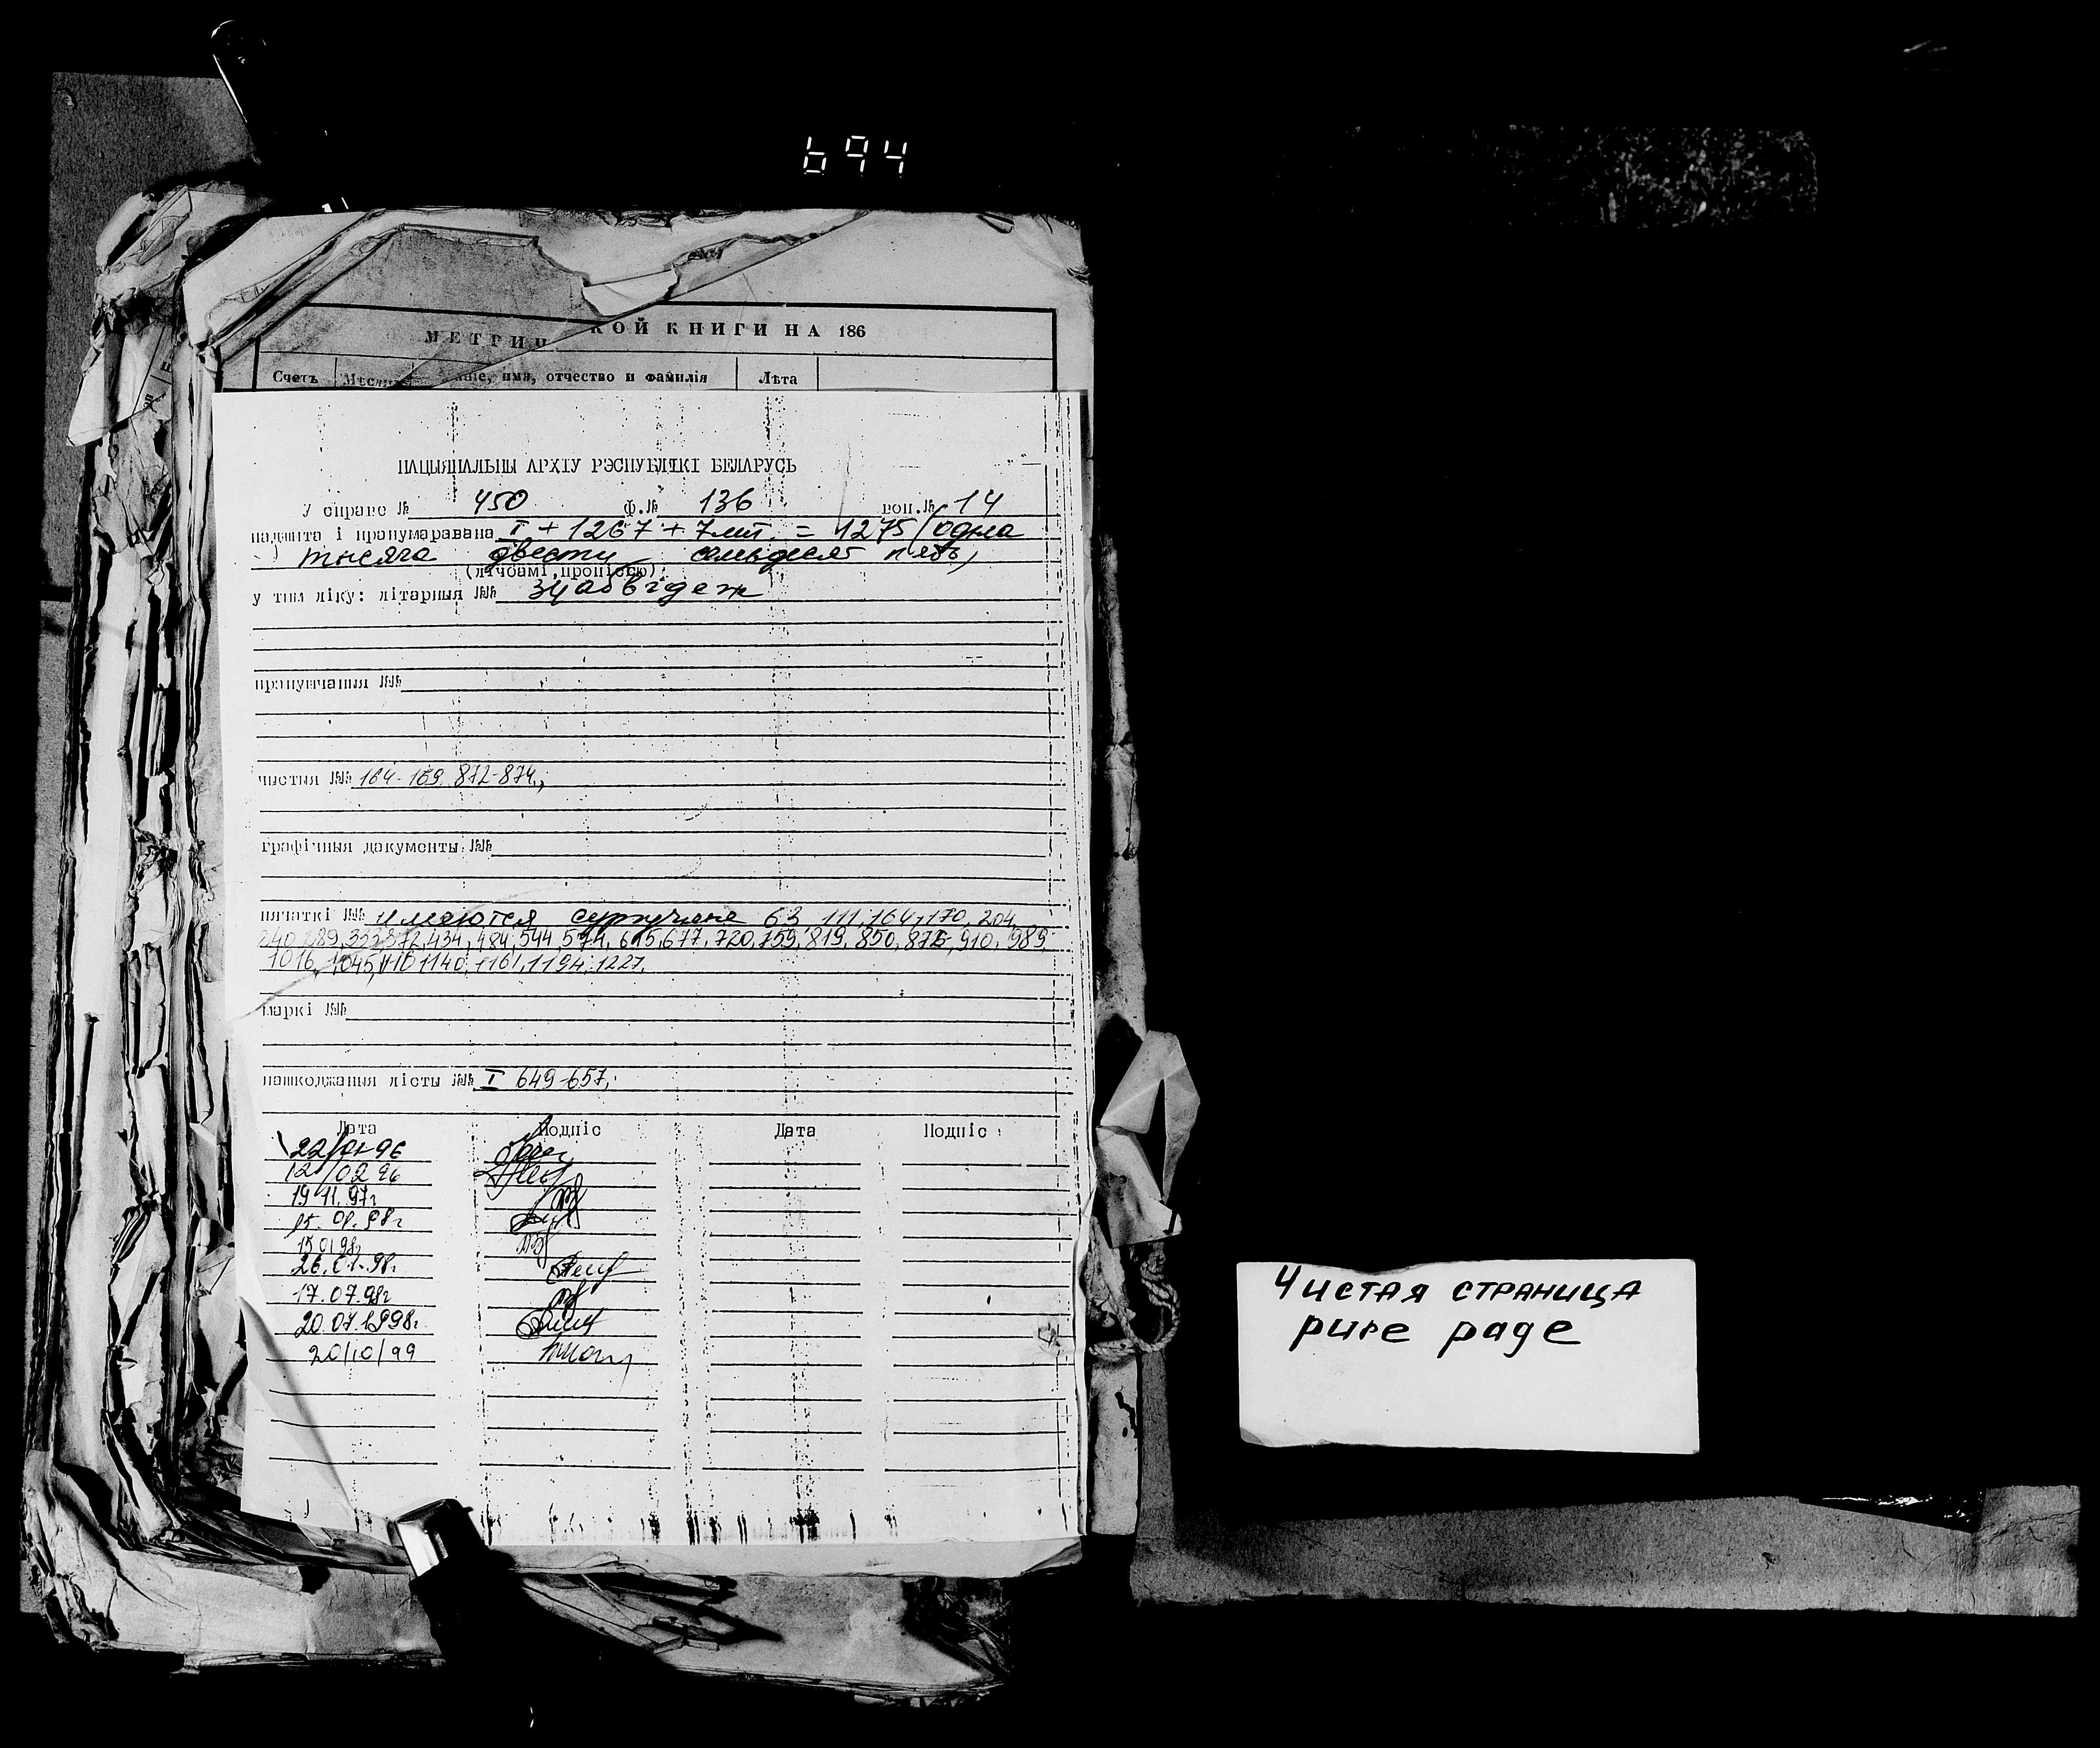 694
МЕТРИЧ КОЙ КНИГИ НА 186
Счетъ Мѣся аніе, имя, отчество и фамилія Лѣта
НАЦЫЯНАЛЬНЫ АРХІУ РЭСПУБЛІКІ БЕЛАРУСЬ
У справе № 450 ф.№ 136 воп.№ 14
падшыта і пранумаравана I + 1267 + 7лит. = 1275 (одна
тысяча двести семьдесят пять)
(лічбамі, пропісью)
у тым ліку: літарныя №№ 34абвгдеж
прапушчаныя №№
чыстыя №№ 164-169. 872-874.,
графічныя дакументы №№
пячаткі №№ имеются сургучные 63, 111, 164, 170, 204,
240, 289, 434, 484, 544, 574, 677, 720, 759, 819, 850, 910, 989,
1016, 1045, 1140, 1161, 1194, 1227.
маркі №№
пашкоджаныя лісты №№ I 649-657,
Дата Подпіс Дата Подпіс
22/01-96
12/02 96
19 11. 97г
15. 01. 98г
15 01 98г
26.01.98г
17.07.98г
20.07.1998г.
20/10/99
Чистая страница
pure page